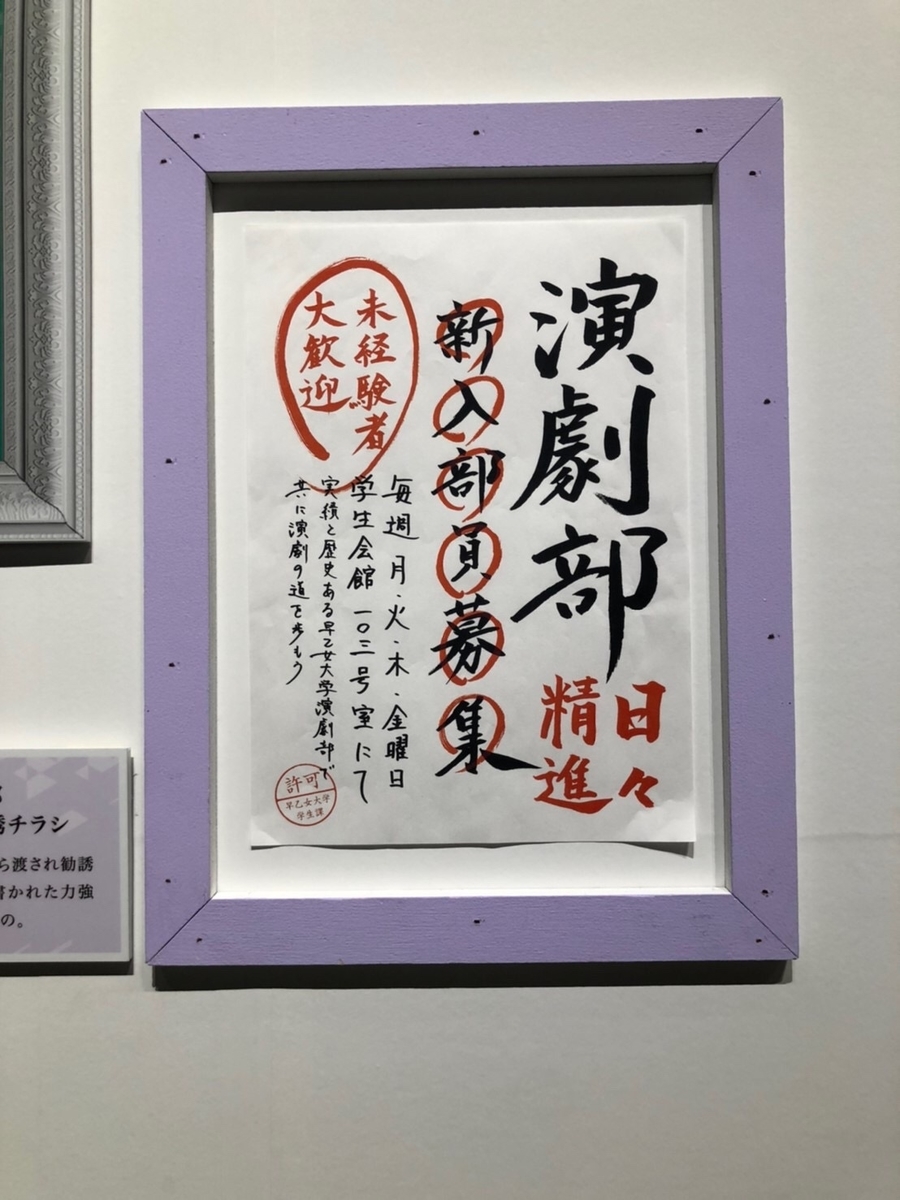 演劇部
日々
精進
新入部員募集
未経験者
大歓迎
毎週 月・火・木・金曜日
学生会館 一〇三号室にて
実績と歴史ある早乙女大学演劇部で
共に演劇の道を歩もう
許可
早乙女大学
学生課
誘チラシ
ら渡され勧誘
書かれた力強
の。